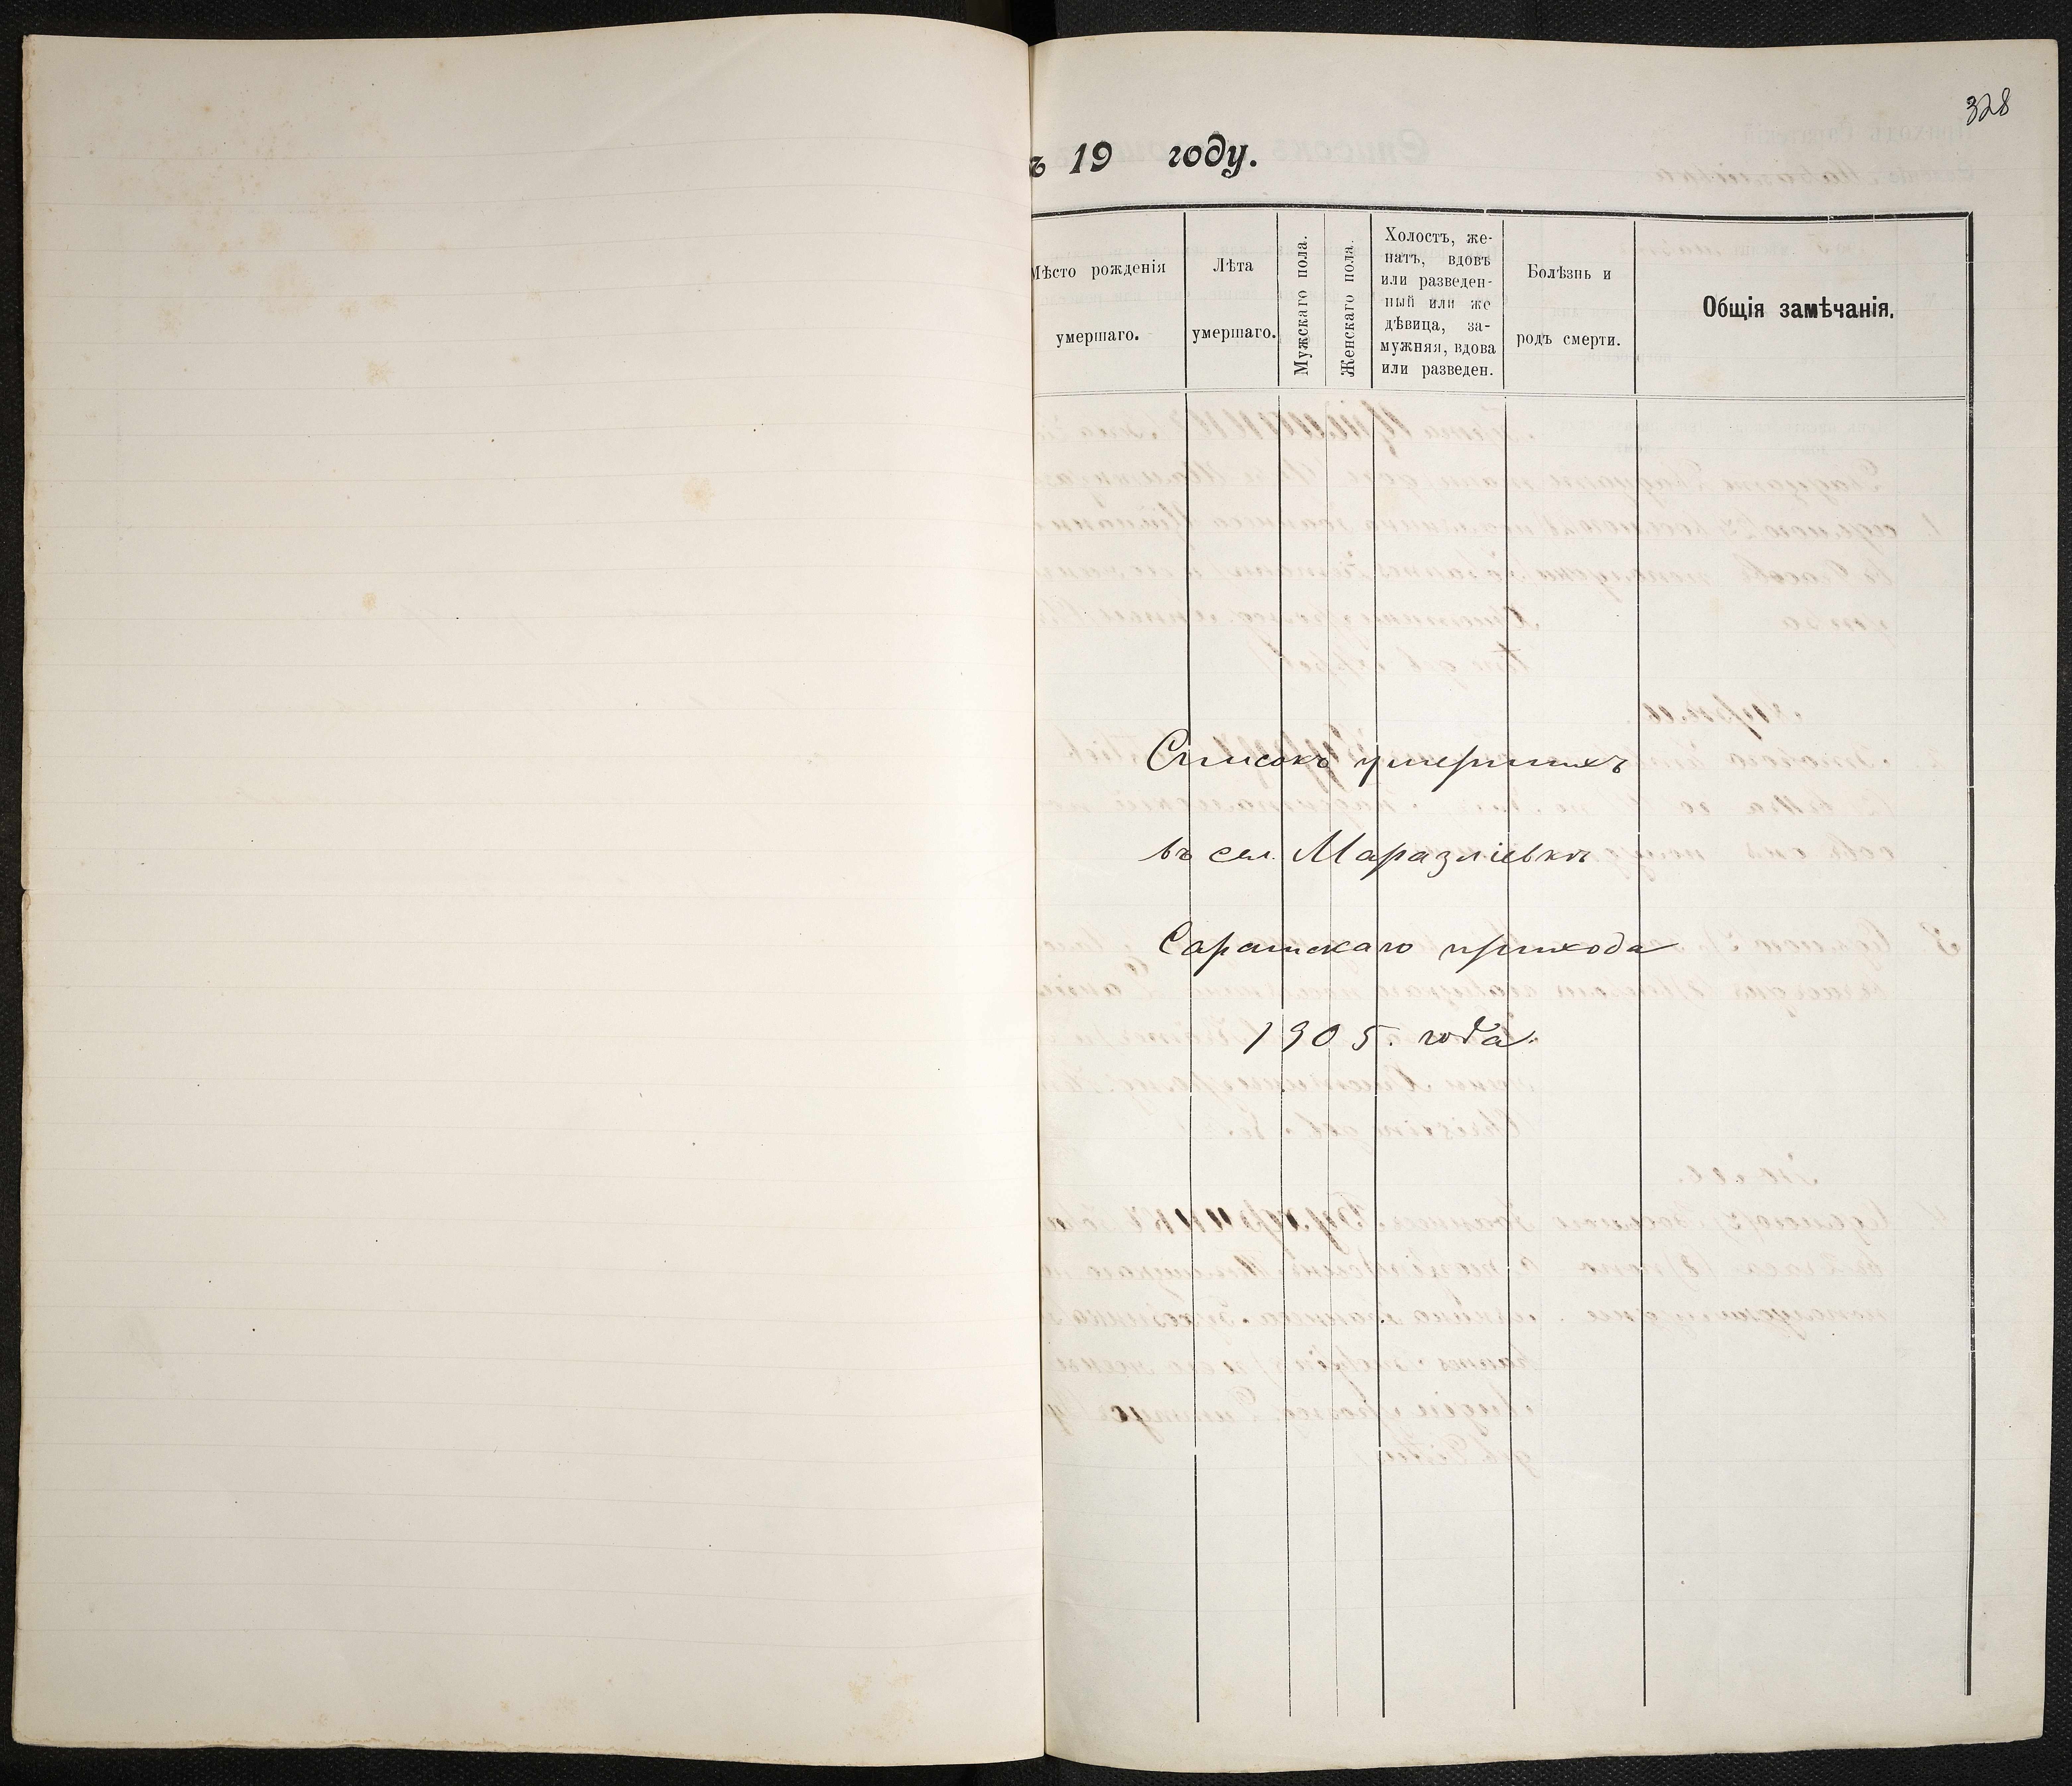 328
ъ 19 году.
Мѣсто рожденія
умершаго.
Лѣта
умершаго.
Мужскаго пола.
Женскаго пола.
Холостъ, же-
натъ, вдовъ
или разведен-
ный или же
дѣвица, за-
мужняя, вдова
или разведен.
Болѣзнь и
родъ смерти.
Общія замѣчанія.
Списокъ умершихъ
въ сел. Маразліевкѣ
Саратскаго прихода
1905. года.